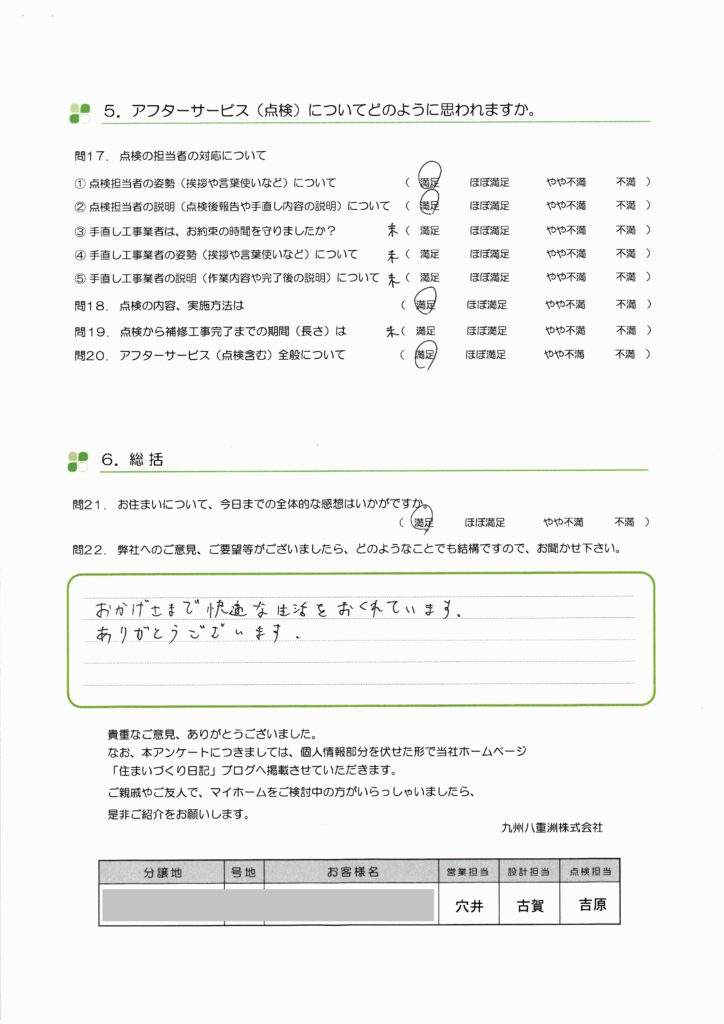 5．アフターサービス（点検）についてどのように思われますか。
問17．点検の担当者の対応について
① 点検担当者の姿勢（挨拶や言葉使いなど）について （ 満足 ほぼ満足 やや不満 不満 ）
② 点検担当者の説明（点検後報告や手直し内容の説明）について （ 満足 ほぼ満足 やや不満 不満 ）
③ 手直し工事業者は、お約束の時間を守りましたか？ 未（ 満足 ほぼ満足 やや不満 不満 ）
④ 手直し工事業者の姿勢（挨拶や言葉使いなど）について 未（ 満足 ほぼ満足 やや不満 不満 ）
⑤ 手直し工事業者の説明（作業内容や完了後の説明）について 未（ 満足 ほぼ満足 やや不満 不満 ）
問18．点検の内容、実施方法は （ 満足 ほぼ満足 やや不満 不満 ）
問19．点検から補修工事完了までの期間（長さ）は 未（ 満足 ほぼ満足 やや不満 不満 ）
問20．アフターサービス（点検含む）全般について （ 満足 ほぼ満足 やや不満 不満 ）
6．総 括
問21．お住まいについて、今日までの全体的な感想はいかがですか。
（ 満足 ほぼ満足 やや不満 不満 ）
問22．弊社へのご意見、ご要望等がございましたら、どのようなことでも結構ですので、お聞かせ下さい。
おかげさまで快適な生活をおくれています。
ありがとうございます．
貴重なご意見、ありがとうございました。
なお、本アンケートにつきましては、個人情報部分を伏せた形で当社ホームページ
「住まいづくり日記」ブログへ掲載させていただきます。
ご親戚やご友人で、マイホームをご検討中の方がいらっしゃいましたら、
是非ご紹介をお願いします。
九州八重洲株式会社
分譲地 号地 お客様名 営業担当 設計担当 点検担当
穴井 古賀 吉原